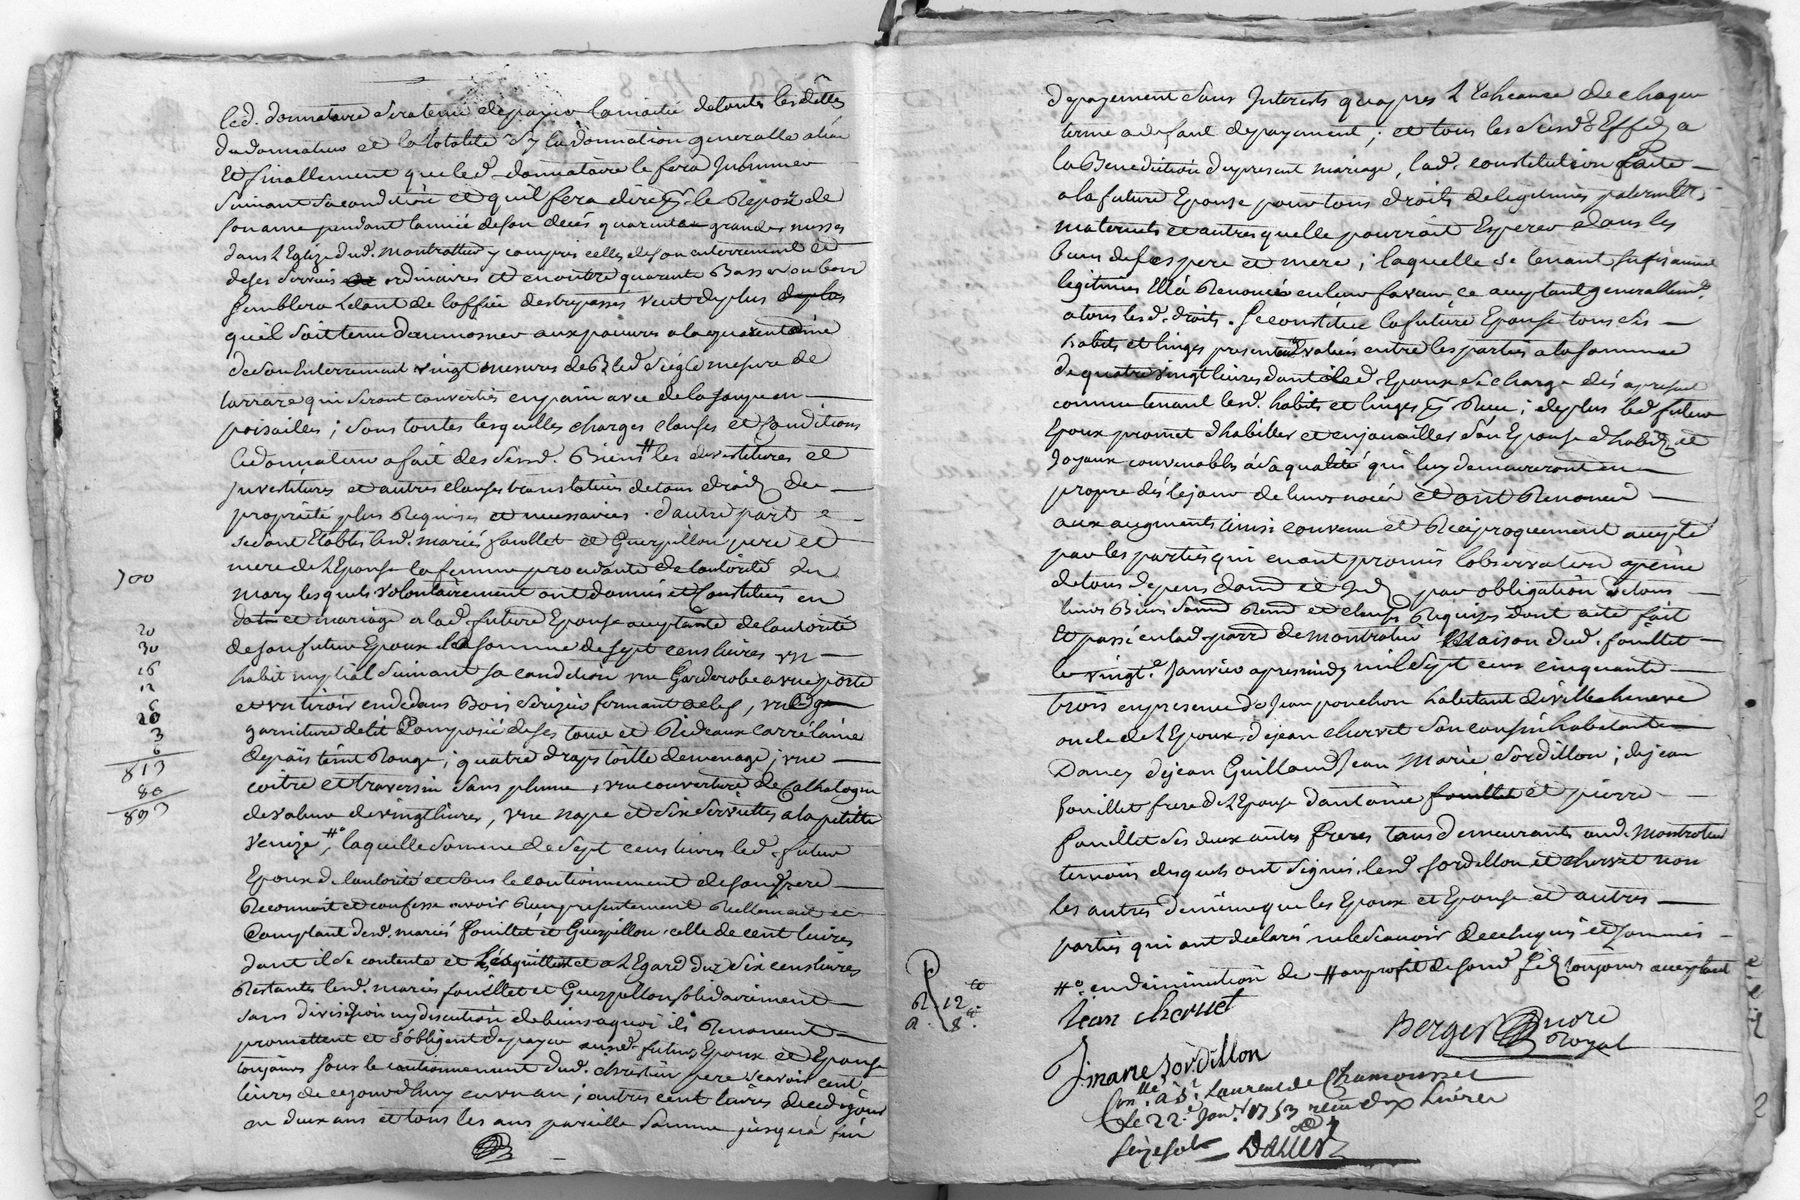 led. donnataire sera tenu de payer la moitié de toutes les dêttes
du donnateur et la totalité sy la donnation generalle a lieu
Et finallement que led. donnataire le fera Inhumer
suivant sa condition et quil fera dire pr. le Repos de
son ame pendant lannée de son decés quarante grandes messes
dans l'Eglize dud. Montrottier y compris celles de son enterrement et
de ses services ordinaires et en outre quarante Basses ou bon
semblera Lestant de l'office des trepasses veut de plus
quil soit tenu daumosner aux pauvres a la quarentaine
de son Enterrement vingt mesures de Bled seigle mesure de
tarrare qui seront converties en pain avec de la
; sous toutes lesquelles charges clauses et Conditions
le donnateur a fait des susd. Biens # les devestitures et
Investitures et autres clauses translatives de tous droits de
proprieté plus Requises et necessaires. d'autre part
se sont Etablis lesd. mariés foüillet et Guerpillon pere et
mere de l'Epouse la femme procedante de l'autorité du
mary lesquels volontairement ont donnés et Constitués en
dot et mariage a lad. future Epouse acceptante de l'autorité
de son futur Epoux la somme de sept cens livres un
habit nuptial suivant sa condition une Garderobe a une porte
et un tiroir en dedans Bois serizier fermant a clef, une
garniture de lit Composée de ses tour et Rideaux
de païs teint Rouge; quatre draps toille de menage; une
coitre et traversin sans plume, une couverture de Cathalogne
de valeur de vingt livres, une nape et six serviettes a la petitte
Venize, #° laquelle somme de sept cens livres led. futur
Epoux de l'autorité et sous le cautionnement de sond. pere
Reconnoit et confesse avoir Reçu presentement Reellement et
Comptant desd. mariés foüillet et Guerpillon celle de cent livres
dont il se contente et les quitte et a l'Egard des six cens livres
Restantes lesd. mariés foüillet et Guerpillon solidairement
sans division ny discution de biens a quoi ils Renoncent
promettent et s'obligent de payer ausd. futurs Epoux et Epouse
toujours sous le cautionnement dud. christien pere scavoir cent
livres de ce jourdhuy en un an; autres cent livres
en deux ans et tous les ans pareille somme jusqu'a fin
700
20
30
16
12
6
20
3
6
813
80
893
de payement sans Interests qu'apres l'Echeance de chaque
terme a defaut de payement; et tous les susd. Effets a
la Benediction du present mariage, lad. constitution faite
a la future Epouse pour tous droits de legitimes paternels,
maternels et autres quelle pourrait Esperer dans les
biens de ses pere et mere; laquelle se tenant
legitimée Ella Renoncé en leur faveur ce acceptant generallemt.
a tous lesd. droits. se constitue la future Epouse tous ses
habits et linges presentemt. Evalués entre les parties a la somme
de quatre vingt livres dont led. Epoux se charge dés a present
comme tenant lesd. habits et linges pr. Reçu; de plus led. futur
Epoux promet d'habiller et enjouailler son Epouse d'habits et
Joyaux convenables a sa qualité qui luy demeureront en
propre dés le jour de leurs noces et ont Renoncé
aux augments ainsi convenu et Reciproquement accepté
par les parties qui en ont promis l'observation a peine
de tous depens dom. et Int. par obligation de tous
leurs Biens soum. Renon. et clauses Requises dont acte fait
Et passé en lad. parr. de Montrotier Maison dud. foüillet
le vingt.e Janvier apres midy mil sept cens cinquante
trois en presence de Jean ponchon habitant de villecheneve
oncle de l'Epoux, de jean chervet son cousin habitant
Dancy de jean Guillaud Jean Marie sordillon; de jean
foüillet frere de l'Epouse d'antoine et pierre
foüillet ses deux autres freres tous demeurants aud. Montrotier
temoins desquels ont signés lesd. sordillon et chervet non
les autres de même que les Epoux et Epouse et autres
parties qui ont declarés ne le scavoir de ce Enquis et sommés
#° en diminution de # au profit de sond. fils toujours acceptant
Jean chervet
Berger nore Royal
J marie Sordillon
Con.lle a St. Laurent de Chamousset
le 22.e Janv. 1753 reçu dix livres
seize sols Dallier
R. 12
R. 8.